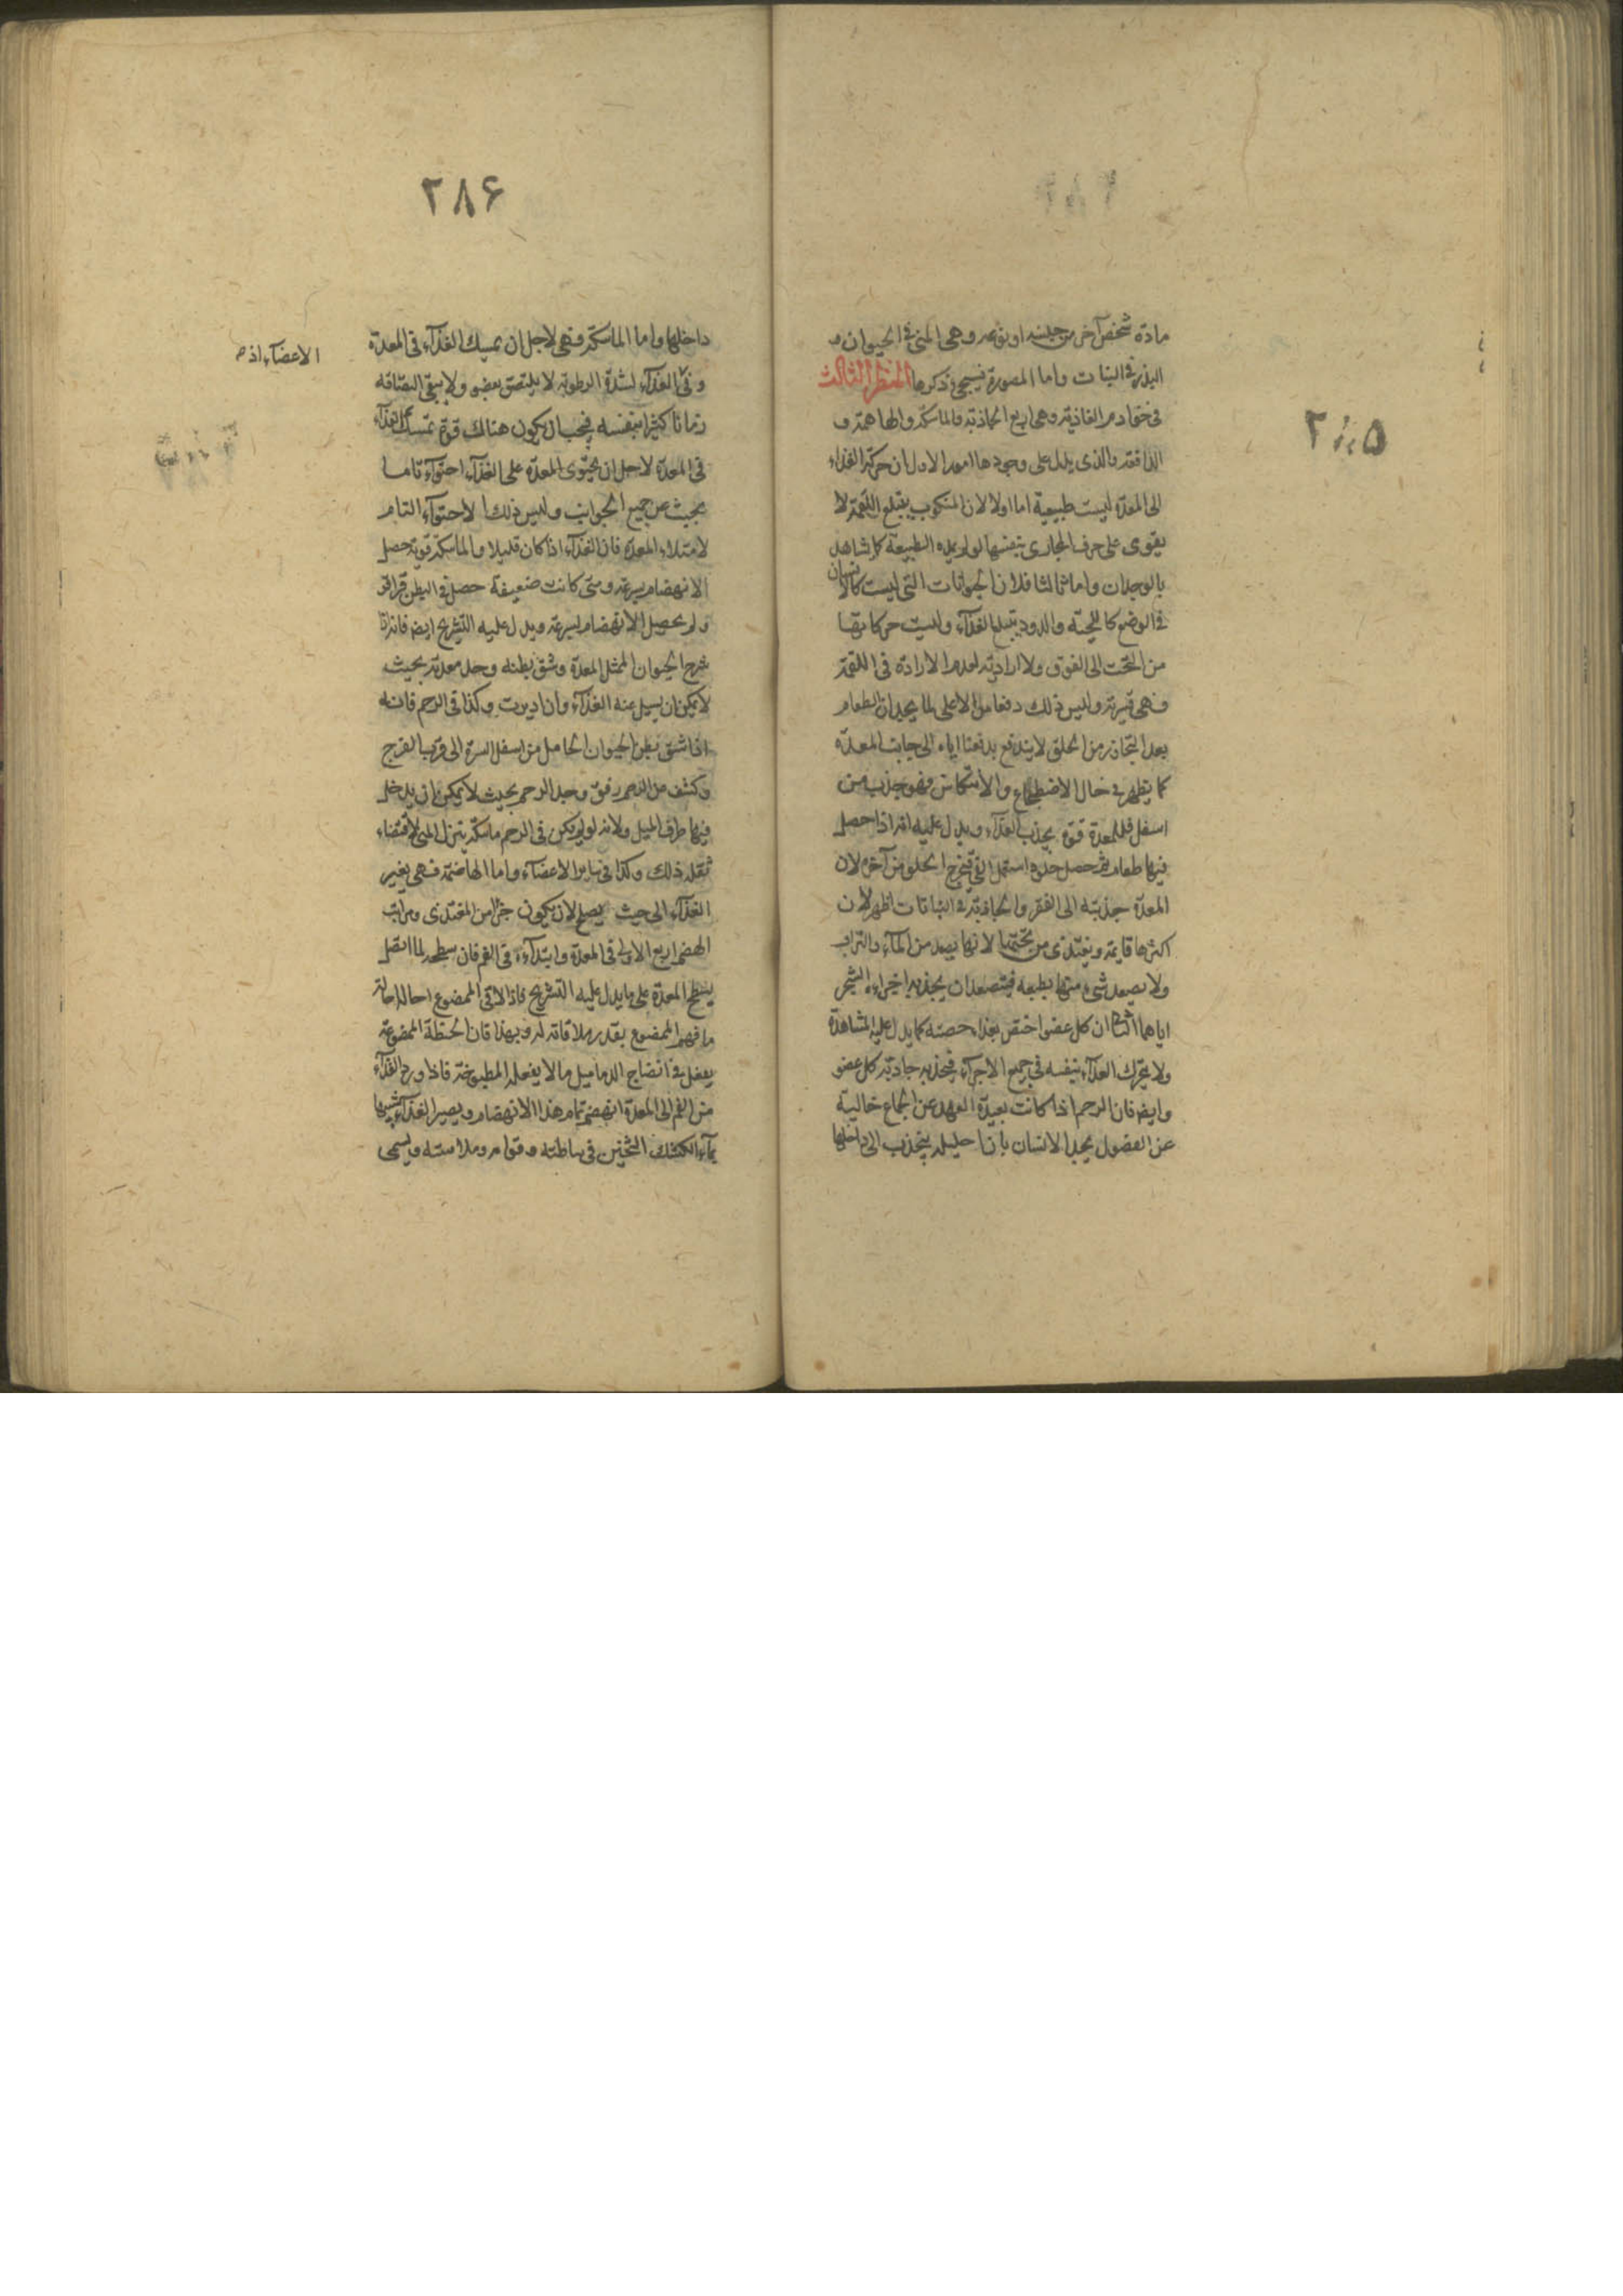 ٢٨٥
مادة شخص آخر من جنسه او نوعه وهى المنى فى الحيوان و
البذر فى النبات واما المصورة فسيجئ ذكرها المنظر الثالث
فى خوادم الغاذية وهى اربع الجاذبة والماسكة والهاضمة و
الدافعة والذى يدل على وجودها امور الاول ان حركة الغذاء
الى المعدة ليست طبيعية اما اولا لان المنكوب يبتلع اللقمة لا
يقوى على حرف المجارى بنفسها لو لم يمده الطبيعة كما شاهد
بالوجدان واما ثالثا فلان الحيوانات التى ليست كالانسان
فى الوضع كالحية والدود تبتلع الغذآء وليست حركاتها
من التحت الى الفوق ولا ارادية لعدم الارادة فى اللقمة
فهى قسرية وليس ذلك دفعا من الاعلى لما يجد ان الطعام
بعد التجاوز من الحلق لا يندفع بدفعنا اياه الى جانب المعدة
كما يظهر فى حال الاضطجاع والانتكاس فهو جذب من
اسفل فللمعدة قوة يجذب الغذآء ويدل عليه انه اذا حصل
فيها طعام ثم حصل حلوه استعمل القئ يخرج الحلو من آخره لان
المعدة جذبته الى القعر والجاذبة فى النباتات اظهر لان
اكثرها قايمة ويغتذى من تحتها لانها يصعد من المآء والتراب
ولا يصعد شئ منها بطبعه فيتصعدان بجذب اجزاء الشجر
اياهما الثانى ان كل عضو اختص بغذاء حصته كما يدل عليه المشاهدة
ولا يتحرك الغذآء بنفسه فى جميع الاجزآء فيجذبه جاذبة كل عضو
وايض فان الرحم اذا كانت بعيدة العهد عن الجماع خالية
عن الفضول يجد الانسان بان احليله ينجذب الى داخلها
٢٨۶
داخلها واما الماسكة فهى لاجل ان يمسك الغذآء فى المعدة
وفى الغذآء لشدة الرطوبة لا يلتصق بعضو ولا يبقى التصاقه
زمانا كثيرا بنفسه فيجب ان يكون هنالك قوة تمسك الغذآء
فى المعدة لاجل ان يحتوى المعدة على الغذآء احتوآء تاما
بحيث عن جميع الجوانب وليس ذلك الاحتوآء التام
لامتلاء المعدة فان الغذآء اذا كان قليلا والماسكة قوية حصل
الانهضام بسرعة ومتى كانت ضعيفة حصل فى البطن قراقر
ولم يحصل الانهضام بسرعة ويدل عليه التشريح ايض فانه اذا
شرح الحيوان الممتلى المعدة وشق بطنه وجد معدته بحيث
لا يمكن ان يسيل عنه الغذآء وان اديرت وكذا فى الرحم فانه
اذا شق بطن الحيوان الحامل من اسفل السرة الى قرب الفرج
وكشف عن الرحم برفق وجد الرحم بحيث لا يمكن ان يدخل
فيها طرف الميل ولانه لو لم يكن فى الرحم ماسكة ينزل المنى لاقتضاء
ثقله ذلك وكذا فى سائر الاعضآء واما الهاضمة فهى يغير
الغذآء الى حيث يصلح لان يكون جزأ من المغتذى ومراتب
الهضم اربع الاولى فى المعدة وابتدآءه فى الفم فان سطحه لما اتصل
بسطح المعدة على ما يدل عليه التشريح فاذا لاقى الممضوغ احاله احالة
ما فهم الممضوغ بقدر ملاقاته له وبهذا فان الحنطة الممضوغة
يفعل فى انضاج الدماميل ما لا يفعله المطبوخة فاذا ورد الغذآء
من الفم الى المعدة انهضم تمام هذا الانهضام ويصير الغذآء شبيها
بمآء الكشك الثخين فى بياضه وقوامه وملاسته ويسمى
الاعضآء اذ م